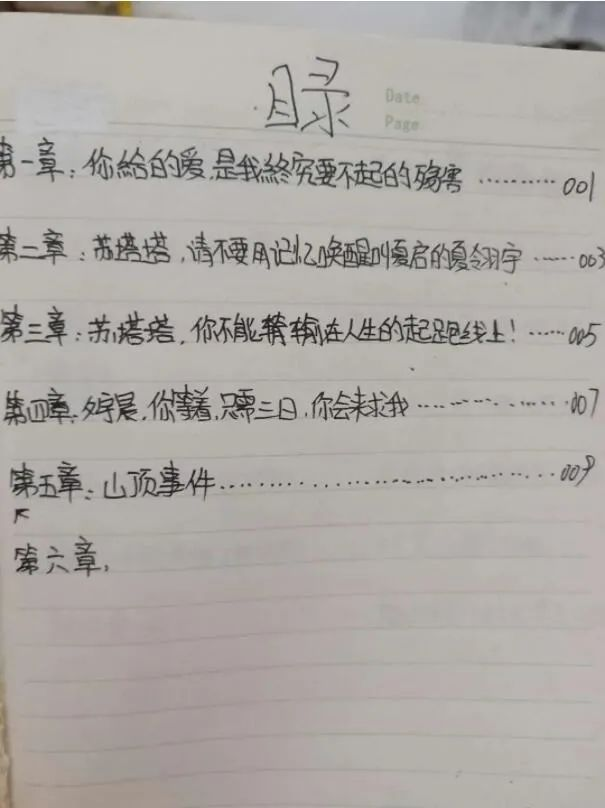 目录
Date
Page
第一章：你給的爱，是我終究要不起的殇害…………001
第二章：苏塔塔，请不要用记忆唤醒叫夏启的夏翎宇……003
第三章：苏塔塔，你不能输在人生的起跑线上！……005
第四章，宇晨，你等着，只需三日，你会来求我……007
第五章：山顶事件……009
第六章，